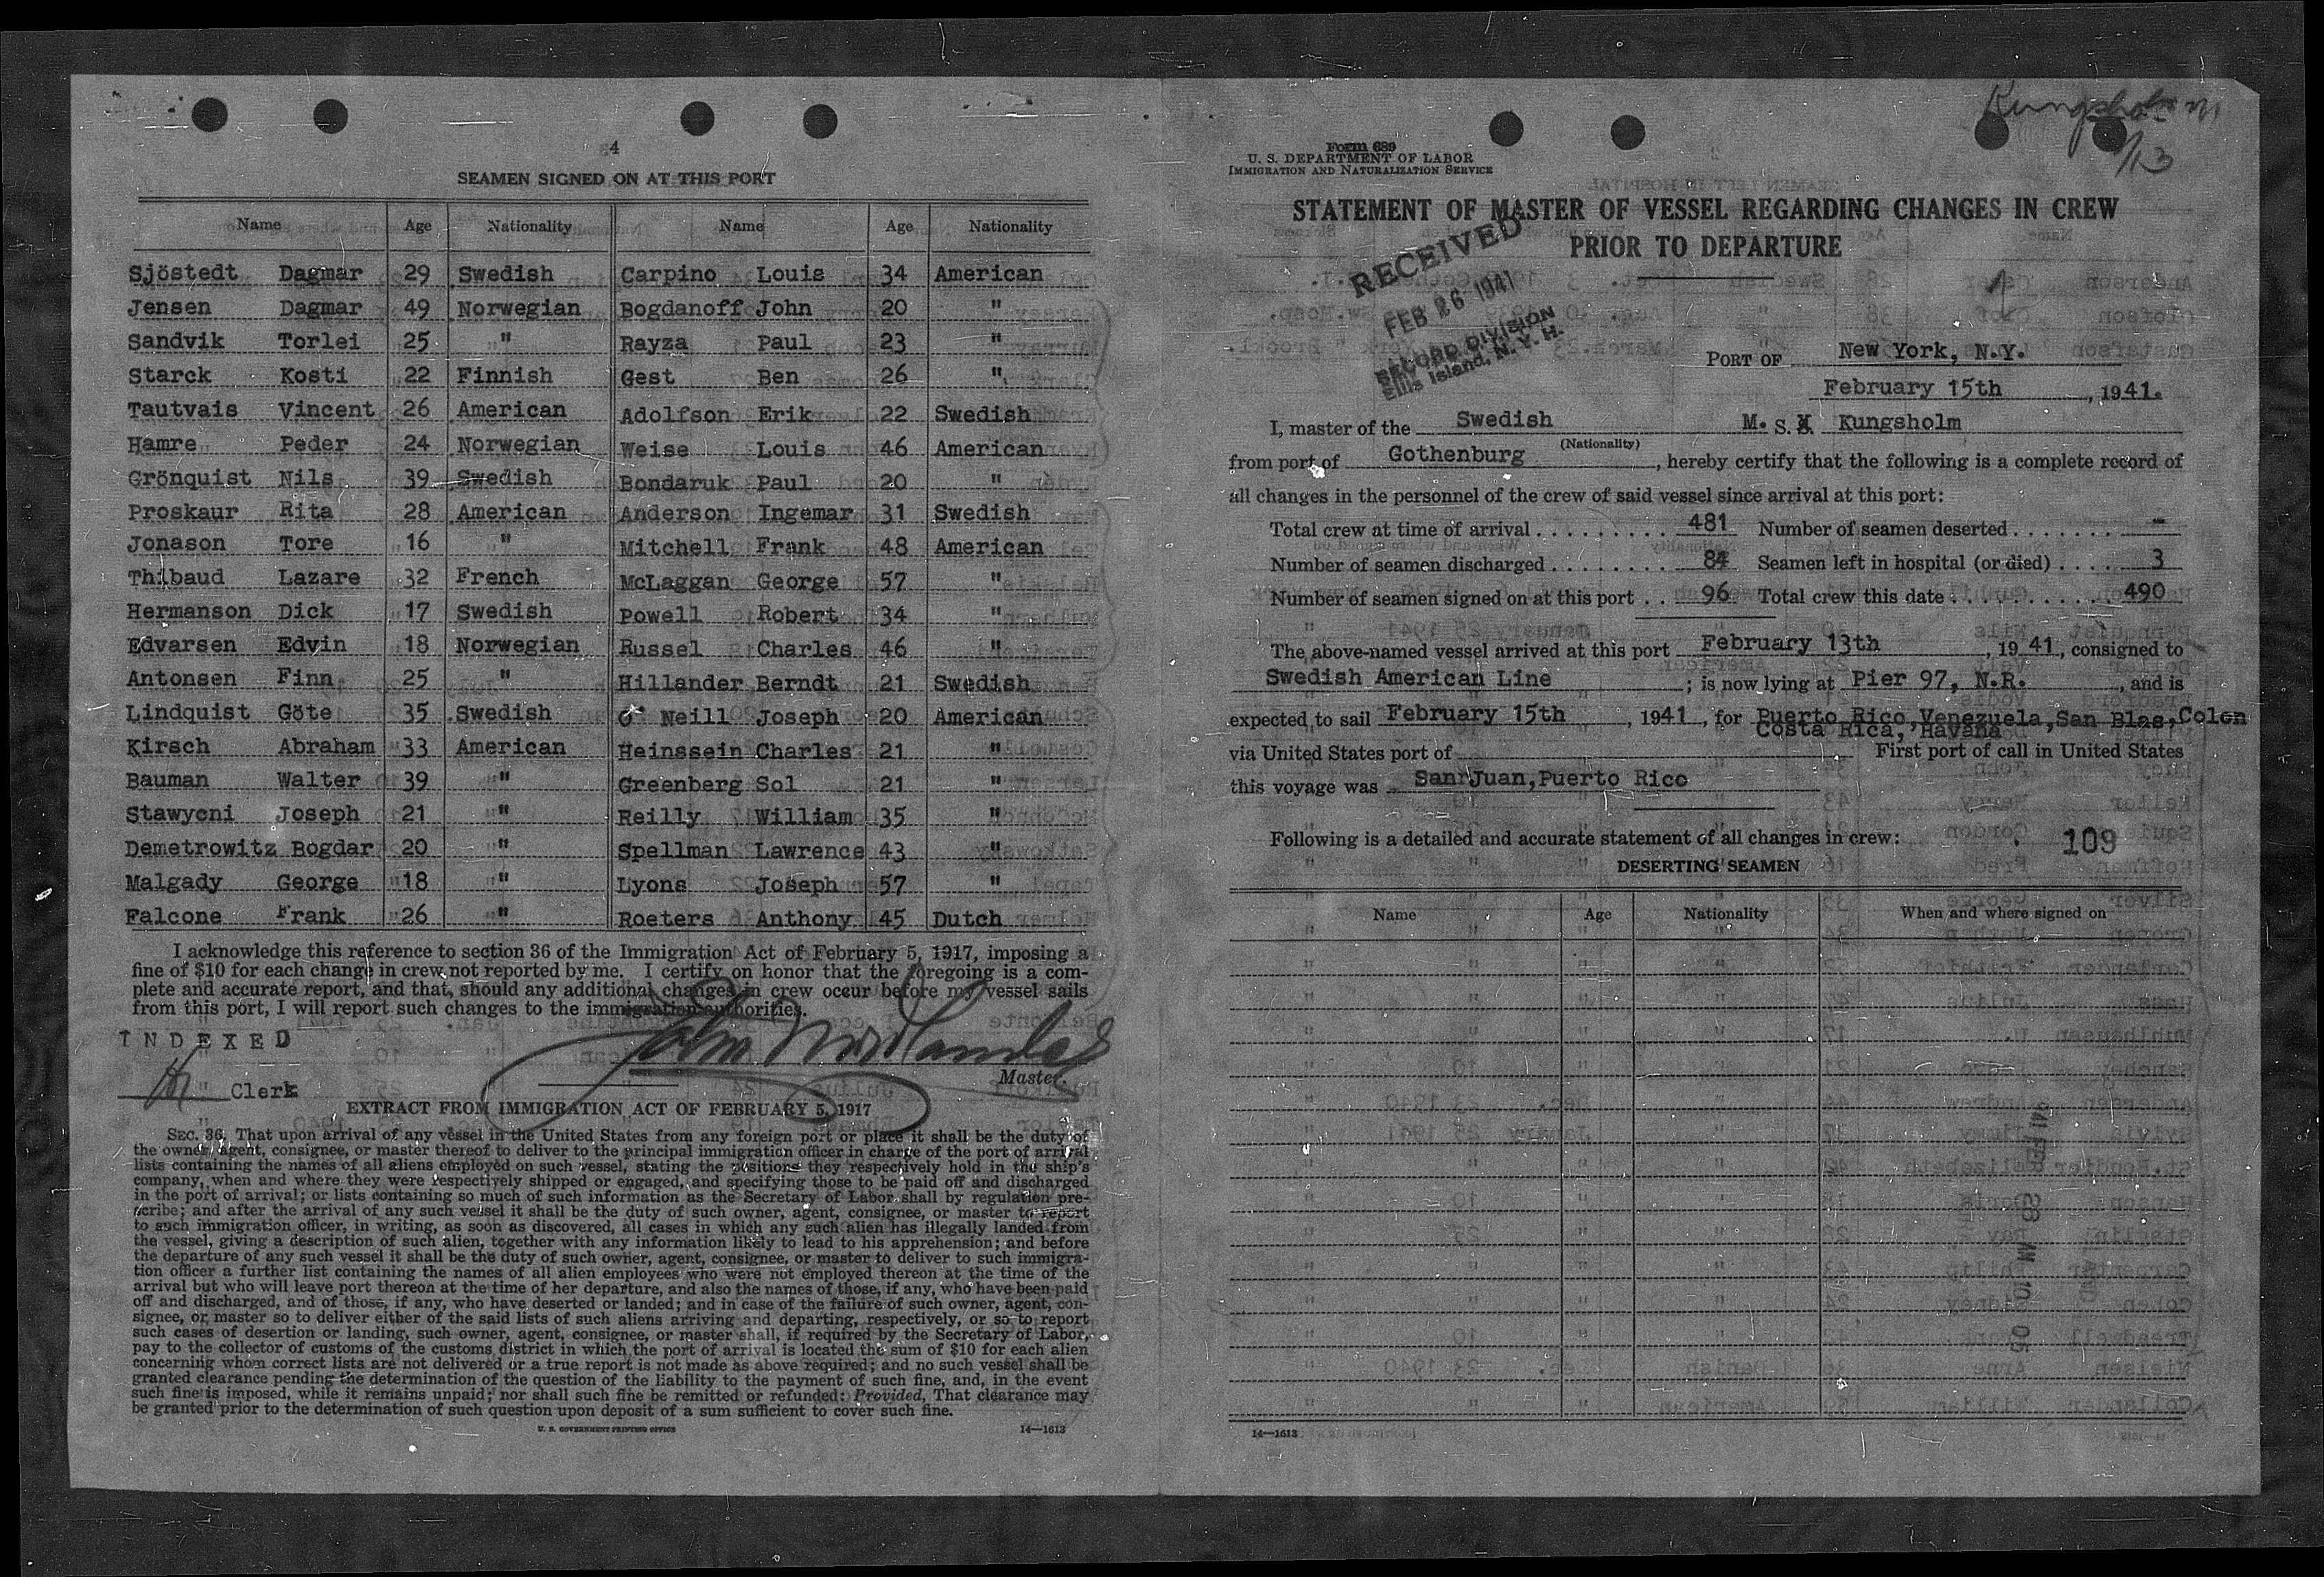 4
SEAMEN SIGNED ON AT THIS PORT
Name Age Nationality Name Age Nationality
Sjöstedt Dagmar 29 Swedish Carpino Louis 34 American
Jensen Dagmar 49 Norwegian Bogdanoff John 20 "
Sandvik Torlei 25 " Rayza Paul 23 "
Starck Kosti 22 Finnish Gest Ben 26 "
Tautvais Vincent 26 American Adolfson Erik 22 Swedish
Hamre Peder 24 Norwegian Weise Louis 46 American
Grönquist Nils 39 Swedish Bondaruk Paul 20 "
Proskaur Rita 28 American Anderson Ingemar 31 Swedish
Jonason Tore 16 " Mitchell Frank 48 American
Thibaud Lazare 32 French McLaggan George 57 "
Hermanson Dick 17 Swedish Powell Robert 34 "
Edvarsen Edvin 18 Norwegian Russel Charles 46 "
Antonsen Finn 25 " Hillander Berndt 21 Swedish
Lindquist Göte 35 Swedish O' Neill Joseph 20 American
Kirsch Abraham 33 American Heinssein Charles 21 "
Bauman Walter 39 " Greenberg Sol 21 "
Stawycni Joseph 21 " Reilly William 35 "
Demetrowitz Bogdar 20 " Spellman Lawrence 43 "
Malgady George 18 " Lyons Joseph 57 "
Falcone Frank 26 " Roeters Anthony 45 Dutch
I acknowledge this reference to section 36 of the Immigration Act of February 5, 1917, imposing a
fine of $10 for each change in crew not reported by me. I certify on honor that the foregoing is a com-
plete and accurate report, and that, should any additional changes in crew occur before my vessel sails
from this port, I will report such changes to the immigration authorities.
INDEXED
John Nordlander
Master.
Clerk
EXTRACT FROM IMMIGRATION ACT OF FEBRUARY 5, 1917
SEC. 36. That upon arrival of any vessel in the United States from any foreign port or place it shall be the duty of
the owner, agent, consignee, or master thereof to deliver to the principal immigration officer in charge of the port of arrival
lists containing the names of all aliens employed on such vessel, stating the positions they respectively hold in the ship's
company, when and where they were respectively shipped or engaged, and specifying those to be paid off and discharged
in the port of arrival; or lists containing so much of such information as the Secretary of Labor shall by regulation pre-
scribe; and after the arrival of any such vessel it shall be the duty of such owner, agent, consignee, or master to report
to such immigration officer, in writing, as soon as discovered, all cases in which any such alien has illegally landed from
the vessel, giving a description of such alien, together with any information likely to lead to his apprehension; and before
the departure of any such vessel it shall be the duty of such owner, agent, consignee, or master to deliver to such immigra-
tion officer a further list containing the names of all alien employees who were not employed thereon at the time of the
arrival but who will leave port thereon at the time of her departure, and also the names of those, if any, who have been paid
off and discharged, and of those, if any, who have deserted or landed; and in case of the failure of such owner, agent, con-
signee, or master so to deliver either of the said lists of such aliens arriving and departing, respectively, or so to report
such cases of desertion or landing, such owner, agent, consignee, or master shall, if required by the Secretary of Labor,
pay to the collector of customs of the customs district in which the port of arrival is located the sum of $10 for each alien
concerning whom correct lists are not delivered or a true report is not made as above required; and no such vessel shall be
granted clearance pending the determination of the question of the liability to the payment of such fine, and, in the event
such fine is imposed, while it remains unpaid; nor shall such fine be remitted or refunded: Provided, That clearance may
be granted prior to the determination of such question upon deposit of a sum sufficient to cover such fine.
U. S. GOVERNMENT PRINTING OFFICE 14—1613
Kungsholm
Form 689
U. S. DEPARTMENT OF LABOR
IMMIGRATION AND NATURALIZATION SERVICE
STATEMENT OF MASTER OF VESSEL REGARDING CHANGES IN CREW
PRIOR TO DEPARTURE
RECEIVED
FEB 26 1941
RECORD DIVISION
Ellis Island, N. Y. H.
PORT OF New York, N.Y.
February 15th, 1941.
I, master of the Swedish M. S. Kungsholm
(Nationality)
from port of Gothenburg, hereby certify that the following is a complete record of
all changes in the personnel of the crew of said vessel since arrival at this port:
Total crew at time of arrival 481 Number of seamen deserted -
Number of seamen discharged 84 Seamen left in hospital (or died) 3
Number of seamen signed on at this port 96 Total crew this date 490
The above-named vessel arrived at this port February 13th, 1941, consigned to
Swedish American Line; is now lying at Pier 97, N.R., and is
expected to sail February 15th, 1941, for Puerto Rico, Venezuela, San Blas, Colon
Costa Rica, Havana
via United States port of First port of call in United States
this voyage was San Juan, Puerto Rico
Following is a detailed and accurate statement of all changes in crew:
109
DESERTING SEAMEN
Name Age Nationality When and where signed on
14—1613